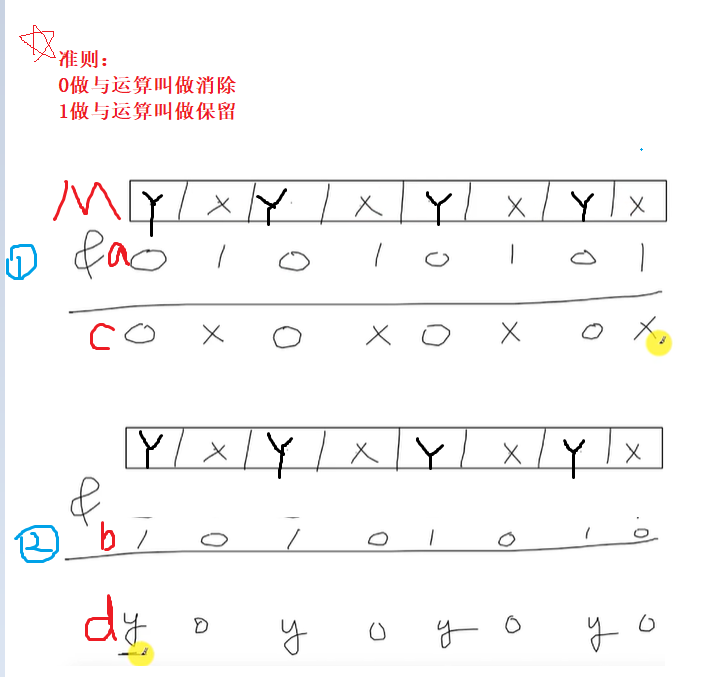 准则：
0做与运算叫做消除
1做与运算叫做保留
M Y / X Y / X Y X / Y X
① & a 0 1 0 1 0 1 0 1
c 0 X 0 X 0 X 0 X
Y / X / Y / X Y / X / Y X
&
② b 1 0 1 0 1 0 1 0
d y 0 y 0 y 0 y 0